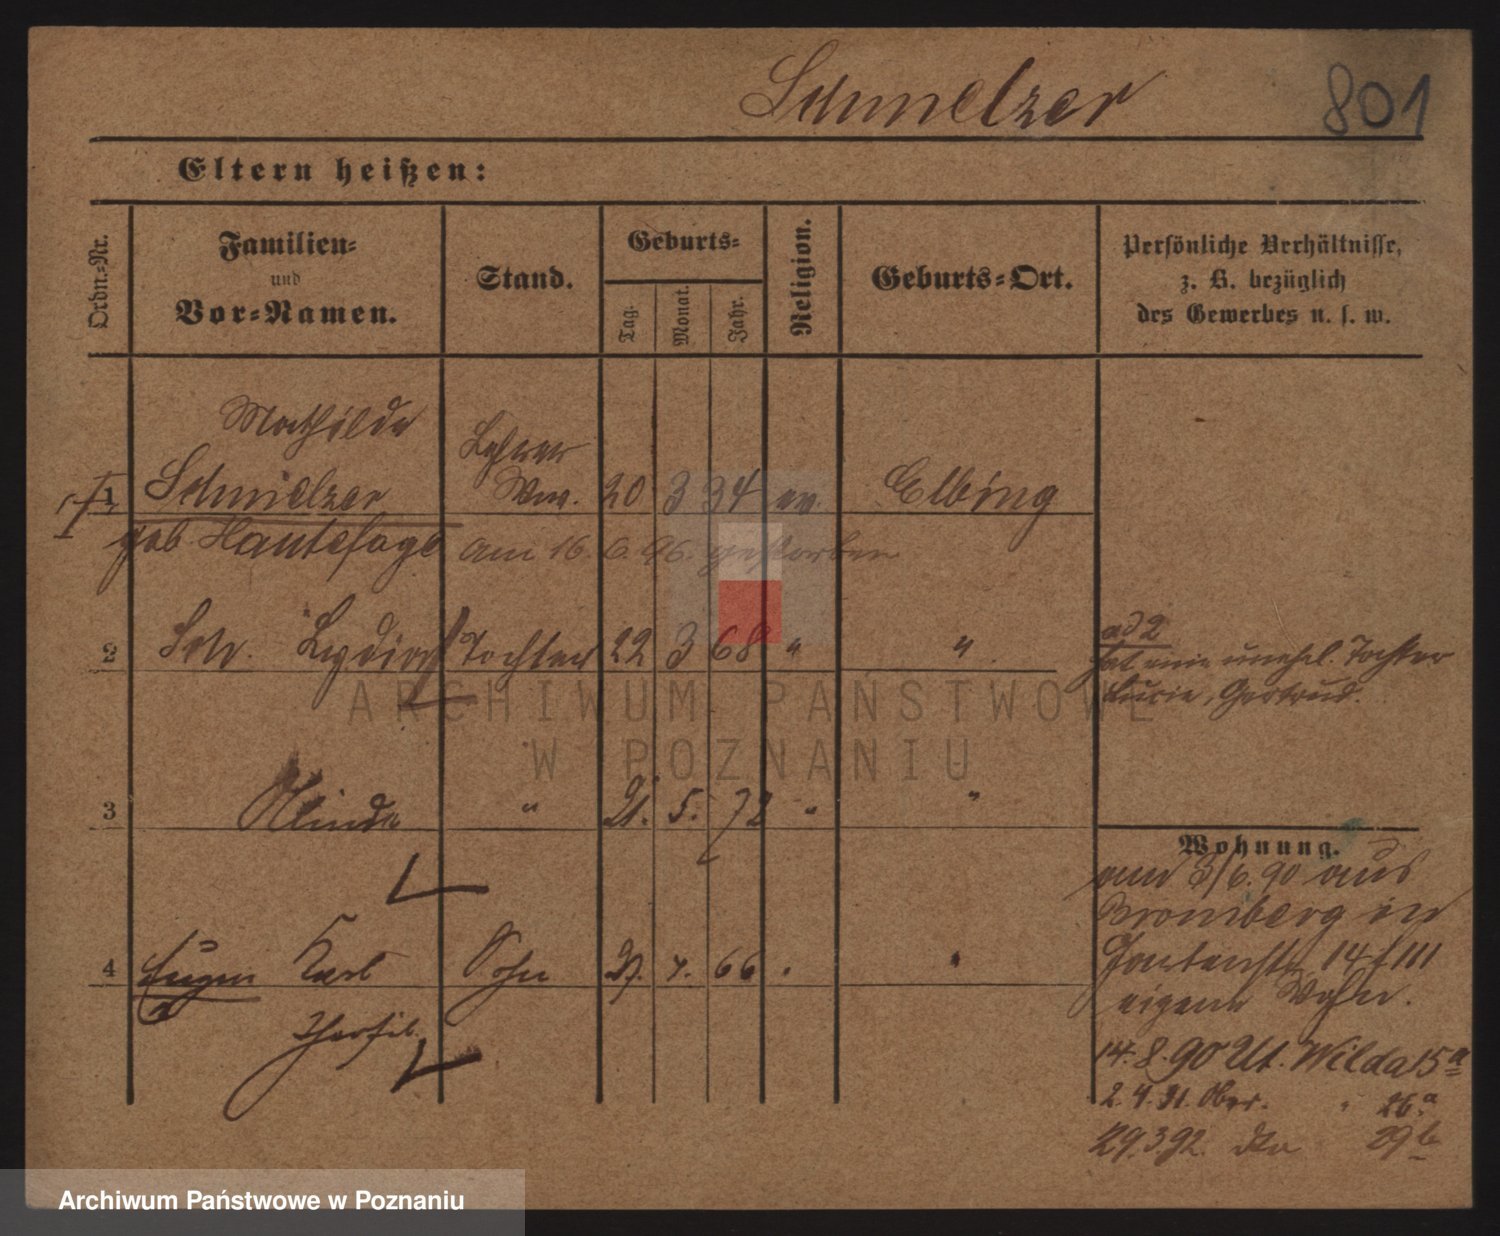 Schmelzer 801
Eltern heißen:
Ordn.-Nr. Familien- und Vor-Namen. Stand. Geburts- Tag. Monat. Jahr. Religion. Geburts-Ort. Persönliche Verhältnisse, z. B. bezüglich des Gewerbes u. s. w.
Mathilde
1 Schmelzer Lehrer Ww. 20 3 34 ev. Elbing
geb. Hautesage am 16. 6. 96. gestorben
2 Sch. Lydia Tochter 22 3 68 " "
ad 2
hat eine unehel. Tochter
Lucie, Gertrud.
3 Olinda " 21. 5. 72 " "
Wohnung.
am 3/6. 90 aus
Bromberg in
Gartenstr. 14 III
eigene Wohn.
4 Eugen Karl Sohn 29. 4. 66 " "
14. 8. 90 Ut. Wilda 15a
2. 4. 91. Ober. " 26a
29. 3. 92. dto 29b
ARCHIWUM PAŃSTWOWE
W POZNANIU
Archiwum Państwowe w Poznaniu